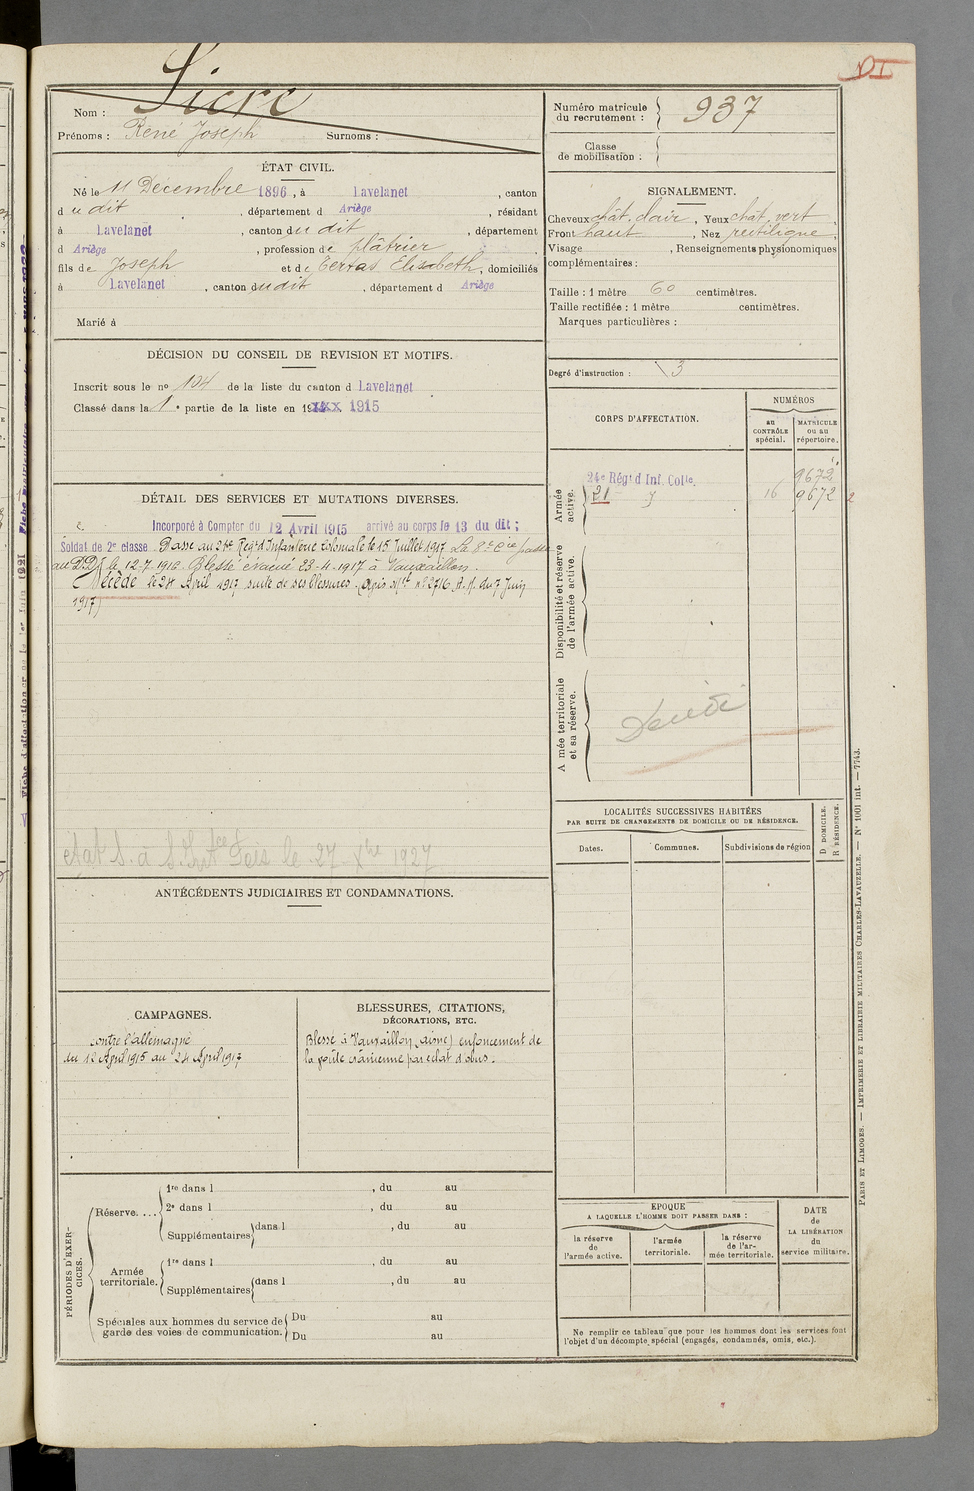 Sicre
Nom :
Prénoms : René Joseph Surnoms :
Numéro matricule du recrutement : 937
Classe de mobilisation :
ÉTAT CIVIL.
Né le 11 Décembre 1896, à Lavelanet, canton
d udit, département d Ariège, résidant
à Lavelanet, canton dudit, département
d Ariège, profession de plâtrier
fils de Joseph et de Tertas Elisabeth, domiciliés
à Lavelanet, canton dudit, département d Ariège
Marié à
SIGNALEMENT.
Cheveux chât. clair, Yeux chât. vert,
Front haut, Nez rectiligne,
Visage , Renseignements physionomiques
complémentaires :
Taille : 1 mètre 60 centimètres.
Taille rectifiée : 1 mètre centimètres.
Marques particulières :
Degré d'instruction : 3
DÉCISION DU CONSEIL DE REVISION ET MOTIFS.
Inscrit sous le nº 104 de la liste du canton d Lavelanet
Classé dans la 1e partie de la liste en 19xxx 1915
CORPS D'AFFECTATION.
NUMÉROS
au CONTRÔLE spécial.
MATRICULE ou au répertoire.
Armée active.
24e Régt d Inf. Colle. 9672
21 16 9672
Disponibilité et réserve de l'armée active.
Armée territoriale et sa réserve.
Décédé
DÉTAIL DES SERVICES ET MUTATIONS DIVERSES.
Incorporé à Compter du 12 Avril 1915 arrivé au corps le 13 du dit ;
Soldat de 2e classe Passé au 21e Régt d'Infanterie Coloniale le 15 Juillet 1917 La 8e Cie passe
au DD le 12-7-1916. Blessé évacué 23-4-1917 à Vauxaillon.
Décédé le 24 April 1917 suite de ses blessures. (Avis Mel nº 2716 A.M. du 7 Juin
1917)
le 27 Xbre 1927
ANTÉCÉDENTS JUDICIAIRES ET CONDAMNATIONS.
LOCALITÉS SUCCESSIVES HABITÉES
PAR SUITE DE CHANGEMENTS DE DOMICILE OU DE RÉSIDENCE.
Dates. Communes. Subdivisions de région
D DOMICILE. R RÉSIDENCE.
CAMPAGNES.
contre l'allemagne
du 12 April 1915 au 24 April 1917
BLESSURES, CITATIONS,
DÉCORATIONS, ETC.
Blessé à Vauxaillon (Aisne) enfoncement de
la voûte crânienne par éclat d'obus.
PÉRIODES D'EXERCICES.
Réserve. ...
1re dans l , du au
2e dans l , du au
Supplémentaires dans l , du au
Armée territoriale.
1re dans l , du au
Supplémentaires dans l , du au
Spéciales aux hommes du service de garde des voies de communication.
Du au
Du au
EPOQUE
A LAQUELLE L'HOMME DOIT PASSER DANS :
la réserve de l'armée active.
l'armée territoriale.
la réserve de l'armée territoriale.
DATE de LA LIBÉRATION du service militaire.
Ne remplir ce tableau que pour les hommes dont les services font
l'objet d'un décompte spécial (engagés, condamnés, omis, etc.).
PARIS ET LIMOGES. — IMPRIMERIE ET LIBRAIRIE MILITAIRES CHARLES-LAVAUZELLE. — Nº 1001 int. — 7743.